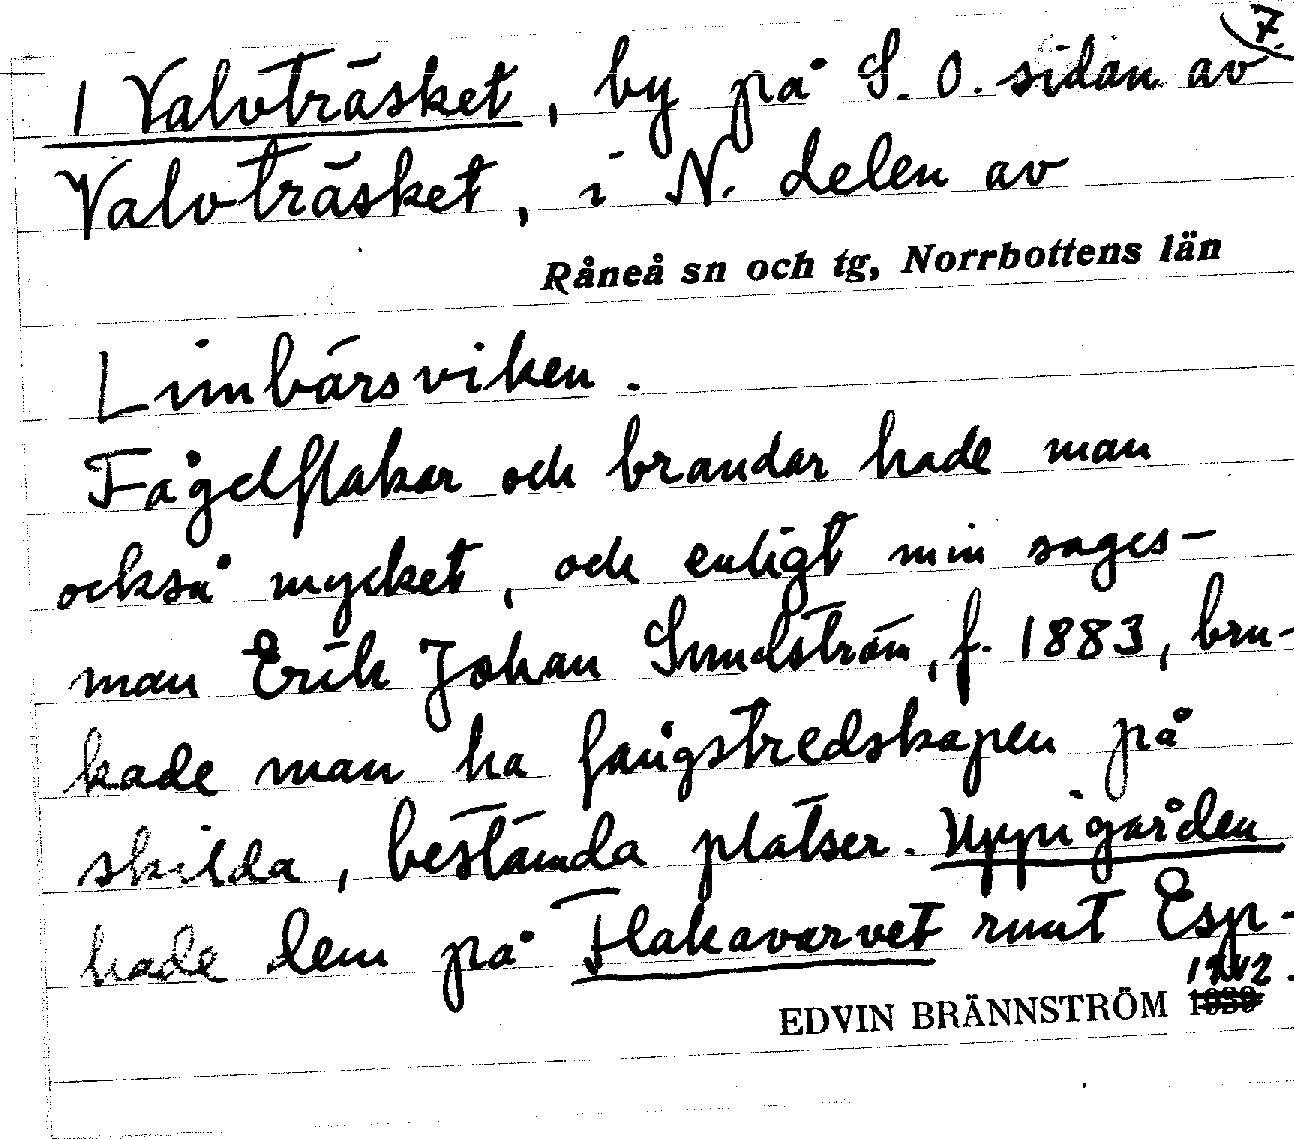 7.
1 Valvträsket, by på S. O. sidan av
Valvträsket, i N. delen av
Råneå sn och tg, Norrbottens län
Limbärsviken.
Fågelflakar och brandar hade man
också mycket, och enligt min sages-
man Erik Johan Sundström, f. 1883, bru-
kade man ha fångstredskapen på
skilda, bestämda platser. Uppigården
hade dem på Flakavarvet runt Esp-
EDVIN BRÄNNSTRÖM 1942.